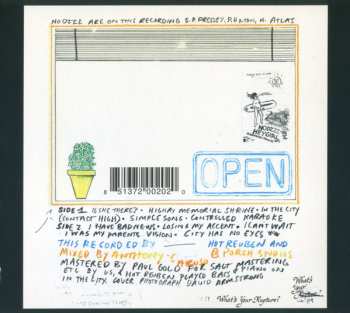 NODZZZ ARE ON THIS RECORDING
NODZZZ
HEYGIRL
OPEN
8 51372 00202 0
SIDE 1 IS SHE THERE? · HIGHWAY MEMORIAL SHRINE · IN THE CITY
(CONTACT HIGH) · SIMPLE SONG · CONTROLLED KARAOKE
SIDE 2 I HAVE BAD NEWS · LOSING MY ACCENT · I CAN'T WAIT
I WAS MY PARENTS VISION · CITY HAS NO EYES
THIS RECORDED BY HOT REUBEN AND
MIXED BY ANTHONY @ PORCH STUDIOS
MASTERED BY PAUL GOLD FOR SALT MASTERING
ETC BY US, & HOT REUBEN PLAYED BASS & PIANO ON
IN THE CITY. COVER PHOTOGRAPH DAVID ARMSTRONG
What's
Your
Rupture?
What's Your Rupture?